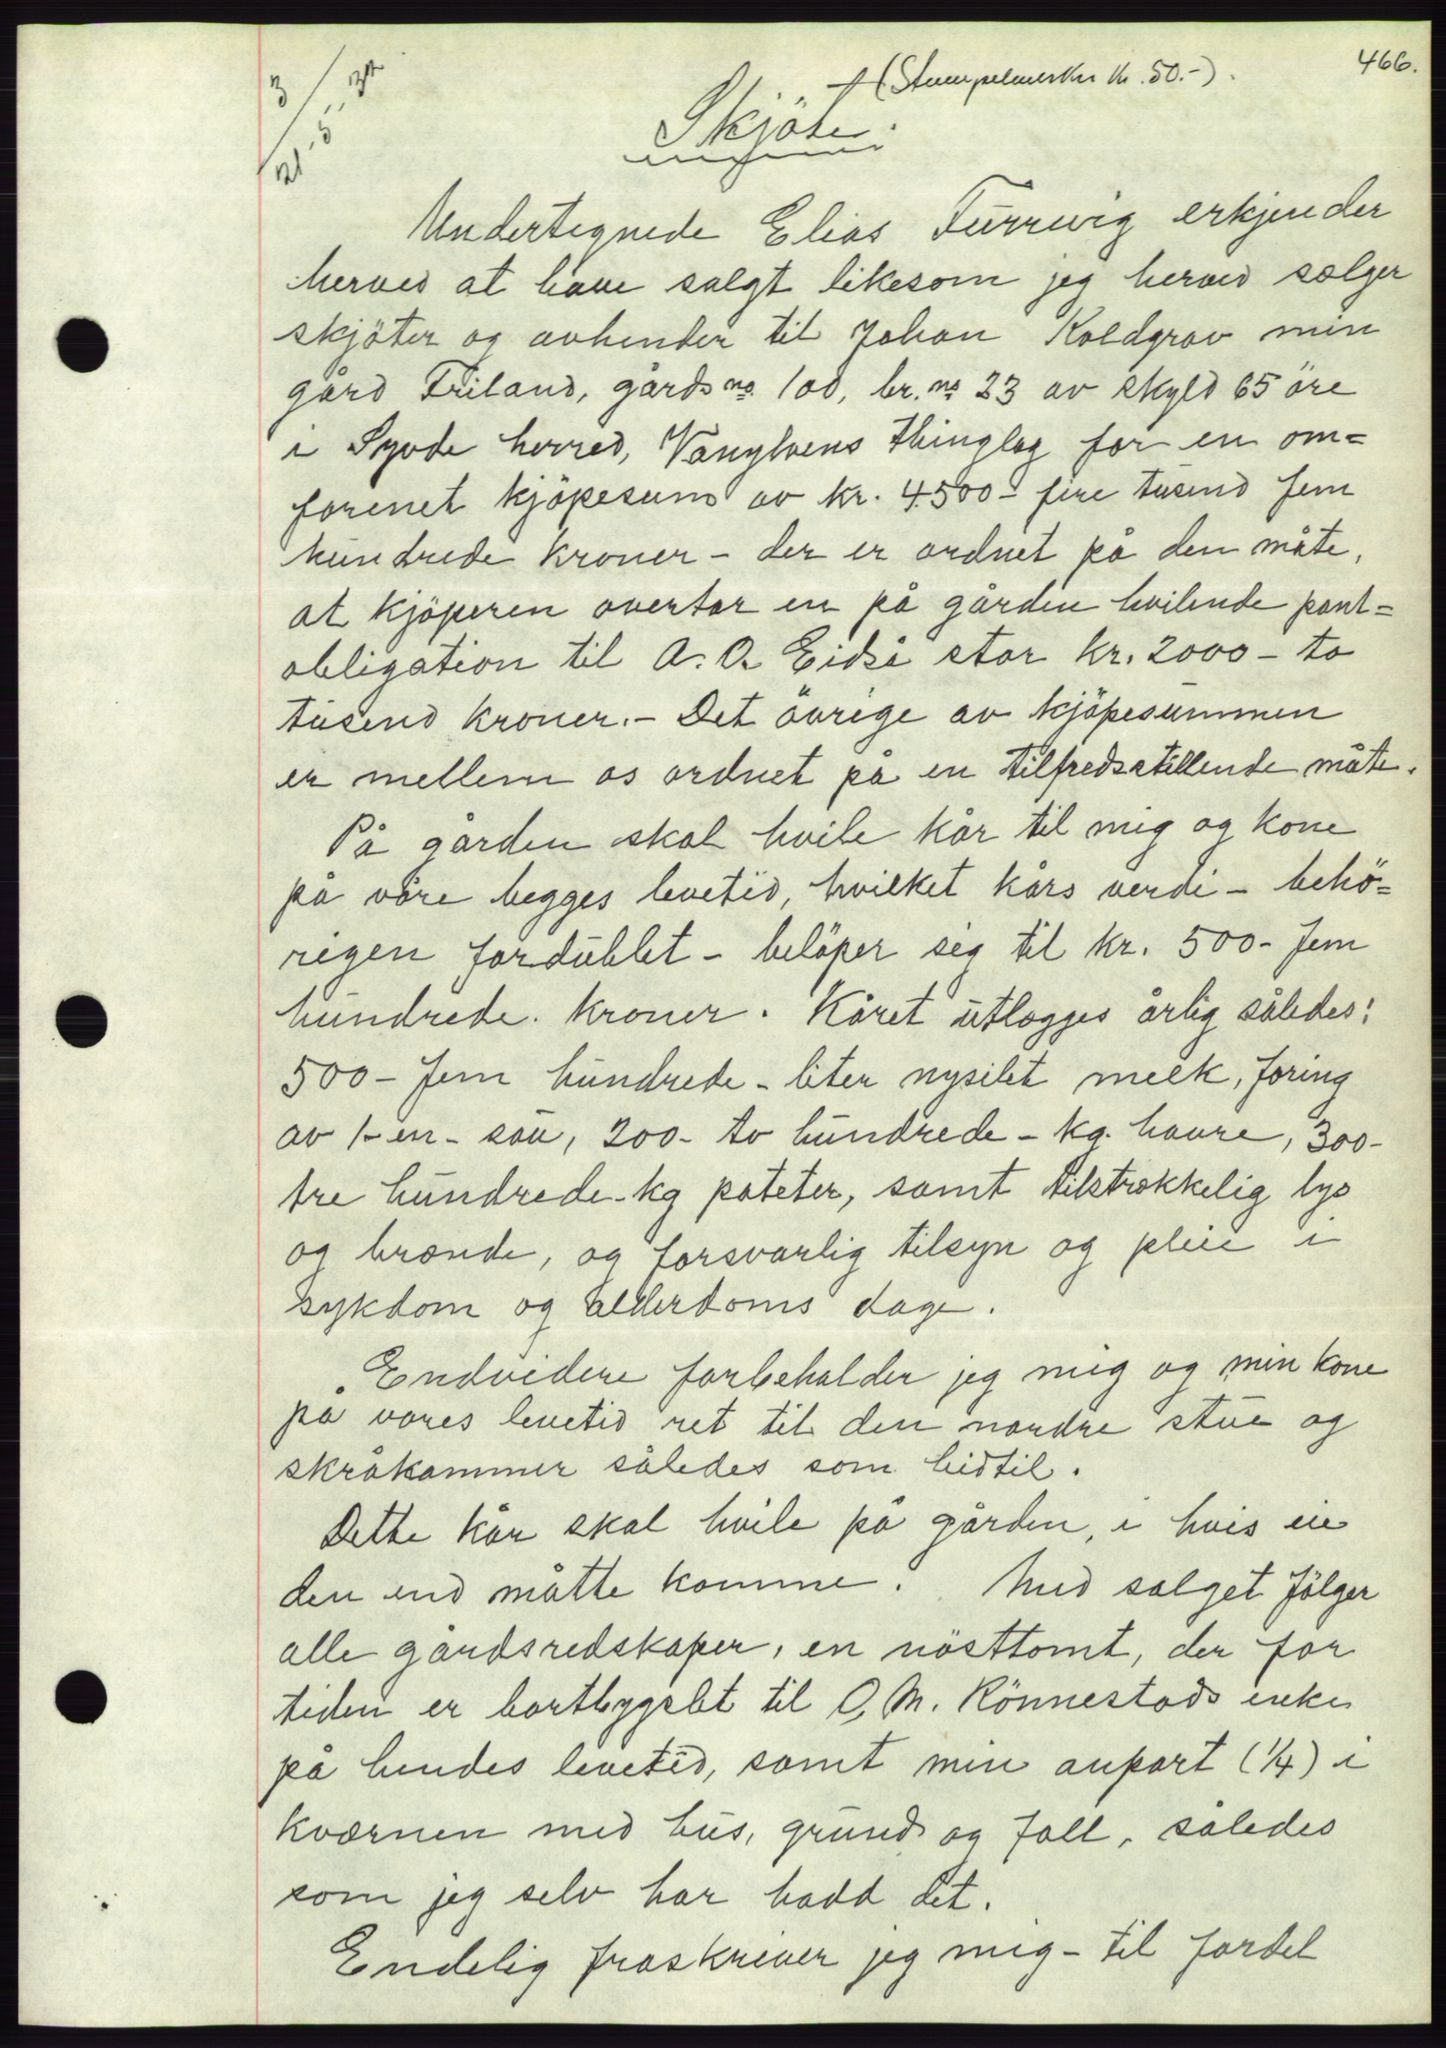 466.
3/21-5-32
(Stempelmerker kr. 50.-).
Skjöte.
Undertegnede Elias Furrevig erkjender
herved at have solgt likesom jeg herved sælger
skjöter og avhender til Johan Koldgrav min
gård Friland, gårds no. 100, br. no 23 av skyld 65 öre
i Syvde herred, Vanylvens thinglag for en om=
forenet kjöpesum av kr. 4500- fire tusend fem
hundrede kroner - der er ordnet på den måte,
at kjöperen overtar en på gården hvilende pant=
obligation til A. O. Eidså stor kr. 2000 - to
tusend kroner. - Det övrige av kjöpesummen
er mellem os ordnet på en tilfredsstillende måte.
På gården skal hvile kår til mig og kone
på våre begges levetid, hvilket kårs verdi - behö=
rigen fordublet - belöper sig til kr. 500 - fem
hundrede. kroner. Kåret utlægges årlig således:
500 - fem hundrede - liter nysilet melk, foring
av 1- en - sau, 200- to hundrede - kg. havre, 300-
tre hundrede - kg poteter, samt tilstrækkelig lys
og brænde, og forsvarlig tilsyn og pleie i
sykdom og alderdoms dage.
Endvidere forbeholder jeg mig og min kone
på vores levetid ret til den nordre stue og
skråkammer således som hidtil.
Dette kår skal hvile på gården, i hvis eie
den end måtte komme. Med salget fölger
alle gårdsredskaper, en nösttomt, der for
tiden er bortbygslet til O. M. Rönnestads enke
på hendes levetid, samt min anpart (1/4) i
kværnen med hus, grund og fall, således
som jeg selv har hadd det.
Endelig fraskriver jeg mig - til fordel